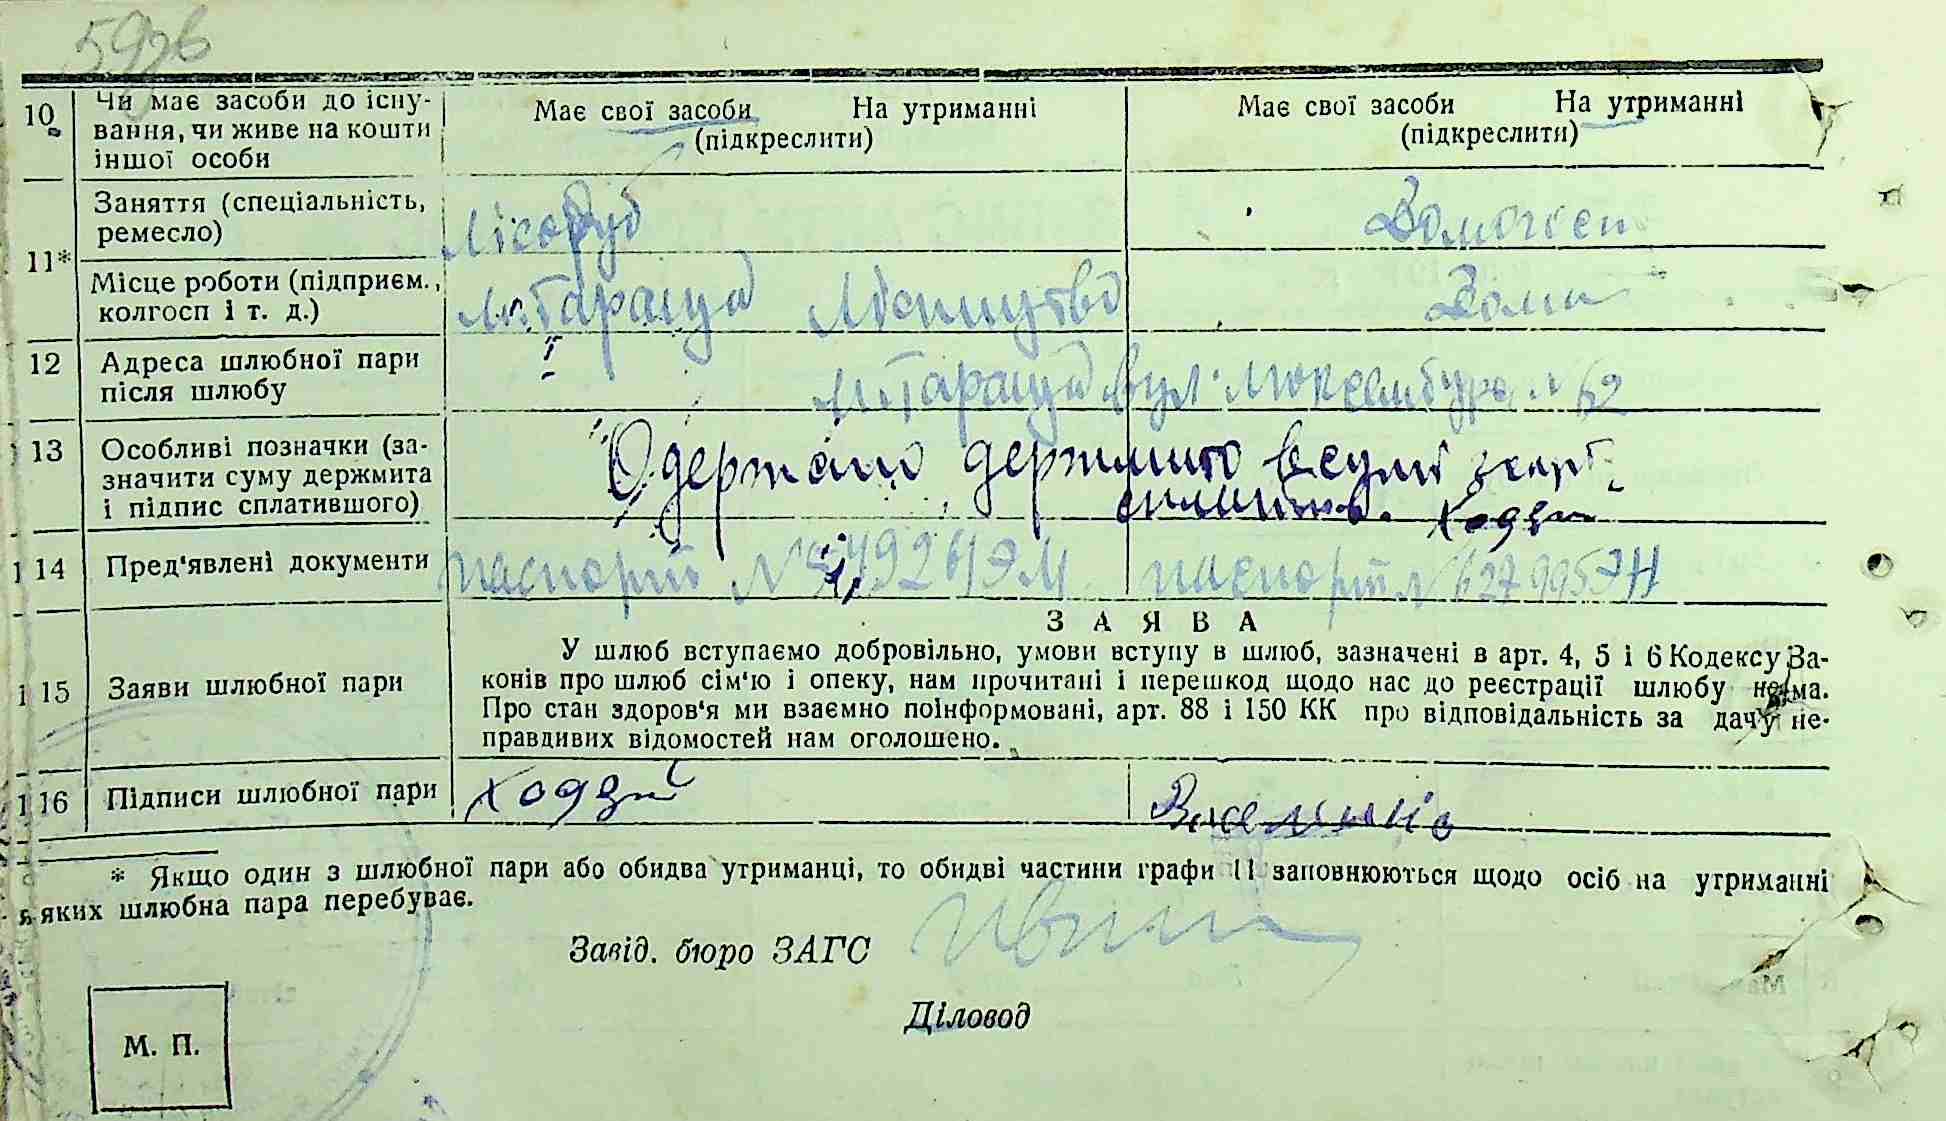 10 Чи має засоби до існу-
вання, чи живе на кошти
іншої особи
Має свої засоби На утриманні
(підкреслити)
Має свої засоби На утриманні
(підкреслити)
11*
Заняття (спеціальність,
ремесло)
Лісоруб
Домогосп
Місце роботи (підприєм.,
колгосп і т. д.)
м. Тараща Лісництво
Дома
12 Адреса шлюбної пари
після шлюбу
м. Тараща вул. Люксембург № 62
13 Особливі позначки (за-
значити суму держмита
і підпис сплатившого)
Одержано держмито в сумі
Ходзи
14 Пред'явлені документи
паспорт № ЭМ
паспорт № 627995 ЭН
ЗАЯВА
15 Заяви шлюбної пари
У шлюб вступаємо добровільно, умови вступу в шлюб, зазначені в арт. 4, 5 і 6 Кодексу За-
конів про шлюб сім'ю і опеку, нам прочитані і перешкод щодо нас до реєстрації шлюбу нема.
Про стан здоров'я ми взаємно поінформовані, арт. 88 і 150 КК про відповідальність за дачу не-
правдивих відомостей нам оголошено.
16 Підписи шлюбної пари
Ходзи
* Якщо один з шлюбної пари або обидва утриманці, то обидві частини графи 11 заповнюються щодо осіб на утриманні
яких шлюбна пара перебуває.
Завід. бюро ЗАГС
Діловод
М. П.